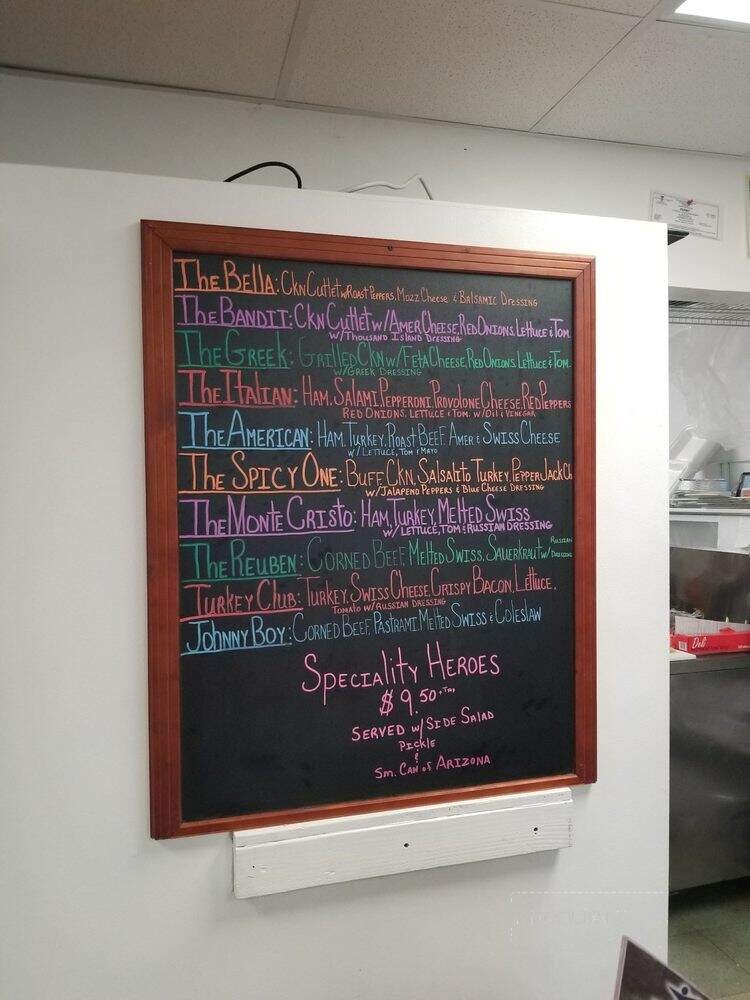 The Bella: Ckn Cutlet w/Roast Peppers, Mozz Cheese & Balsamic Dressing
The Bandit: Ckn Cutlet w/Amer Cheese, Red Onions, Lettuce & Tom.
w/Thousand Island Dressing
The Greek: Grilled Ckn w/Feta Cheese, Red Onions, Lettuce & Tom.
w/Greek Dressing
The Italian: Ham, Salami, Pepperoni, Provolone Cheese, Red Peppers
Red Onions, Lettuce & Tom. w/Oil & Vinegar
The American: Ham, Turkey, Roast Beef, Amer & Swiss Cheese
w/Lettuce, Tom & Mayo
The Spicy One: Buff. Ckn, Salsalito Turkey, Pepper Jack Ch
w/Jalapeno Peppers & Blue Cheese Dressing
The Monte Cristo: Ham, Turkey, Melted Swiss
w/Lettuce, Tom & Russian Dressing
The Reuben: Corned Beef, Melted Swiss, Sauerkraut w/ Russian Dressing
Turkey Club: Turkey, Swiss Cheese, Crispy Bacon, Lettuce,
Tomato w/Russian Dressing
Johnny Boy: Corned Beef, Pastrami, Melted Swiss & Coleslaw
Speciality Heroes
$9.50 + Tax
Served w/Side Salad
Pickle
&
Sm. Can of Arizona
Deli